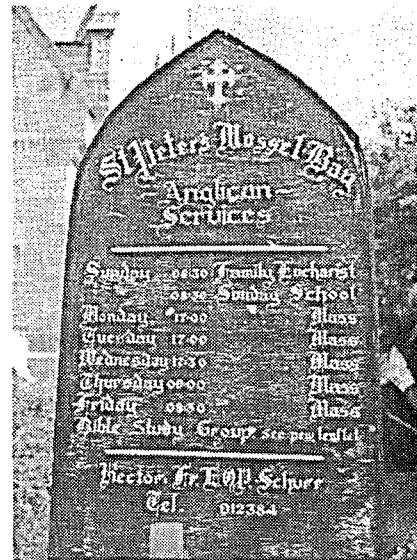 St Peters Mossel Bay
Anglican
Services
Sunday 08:30 Family Eucharist
08:30 Sunday School
Monday 17:00 Mass
Tuesday 17:00 Mass
Wednesday Mass
Thursday 09:00 Mass
Friday Mass
Bible Study Groups see pew leaflet
Rector: Fr.
Tel. 012384